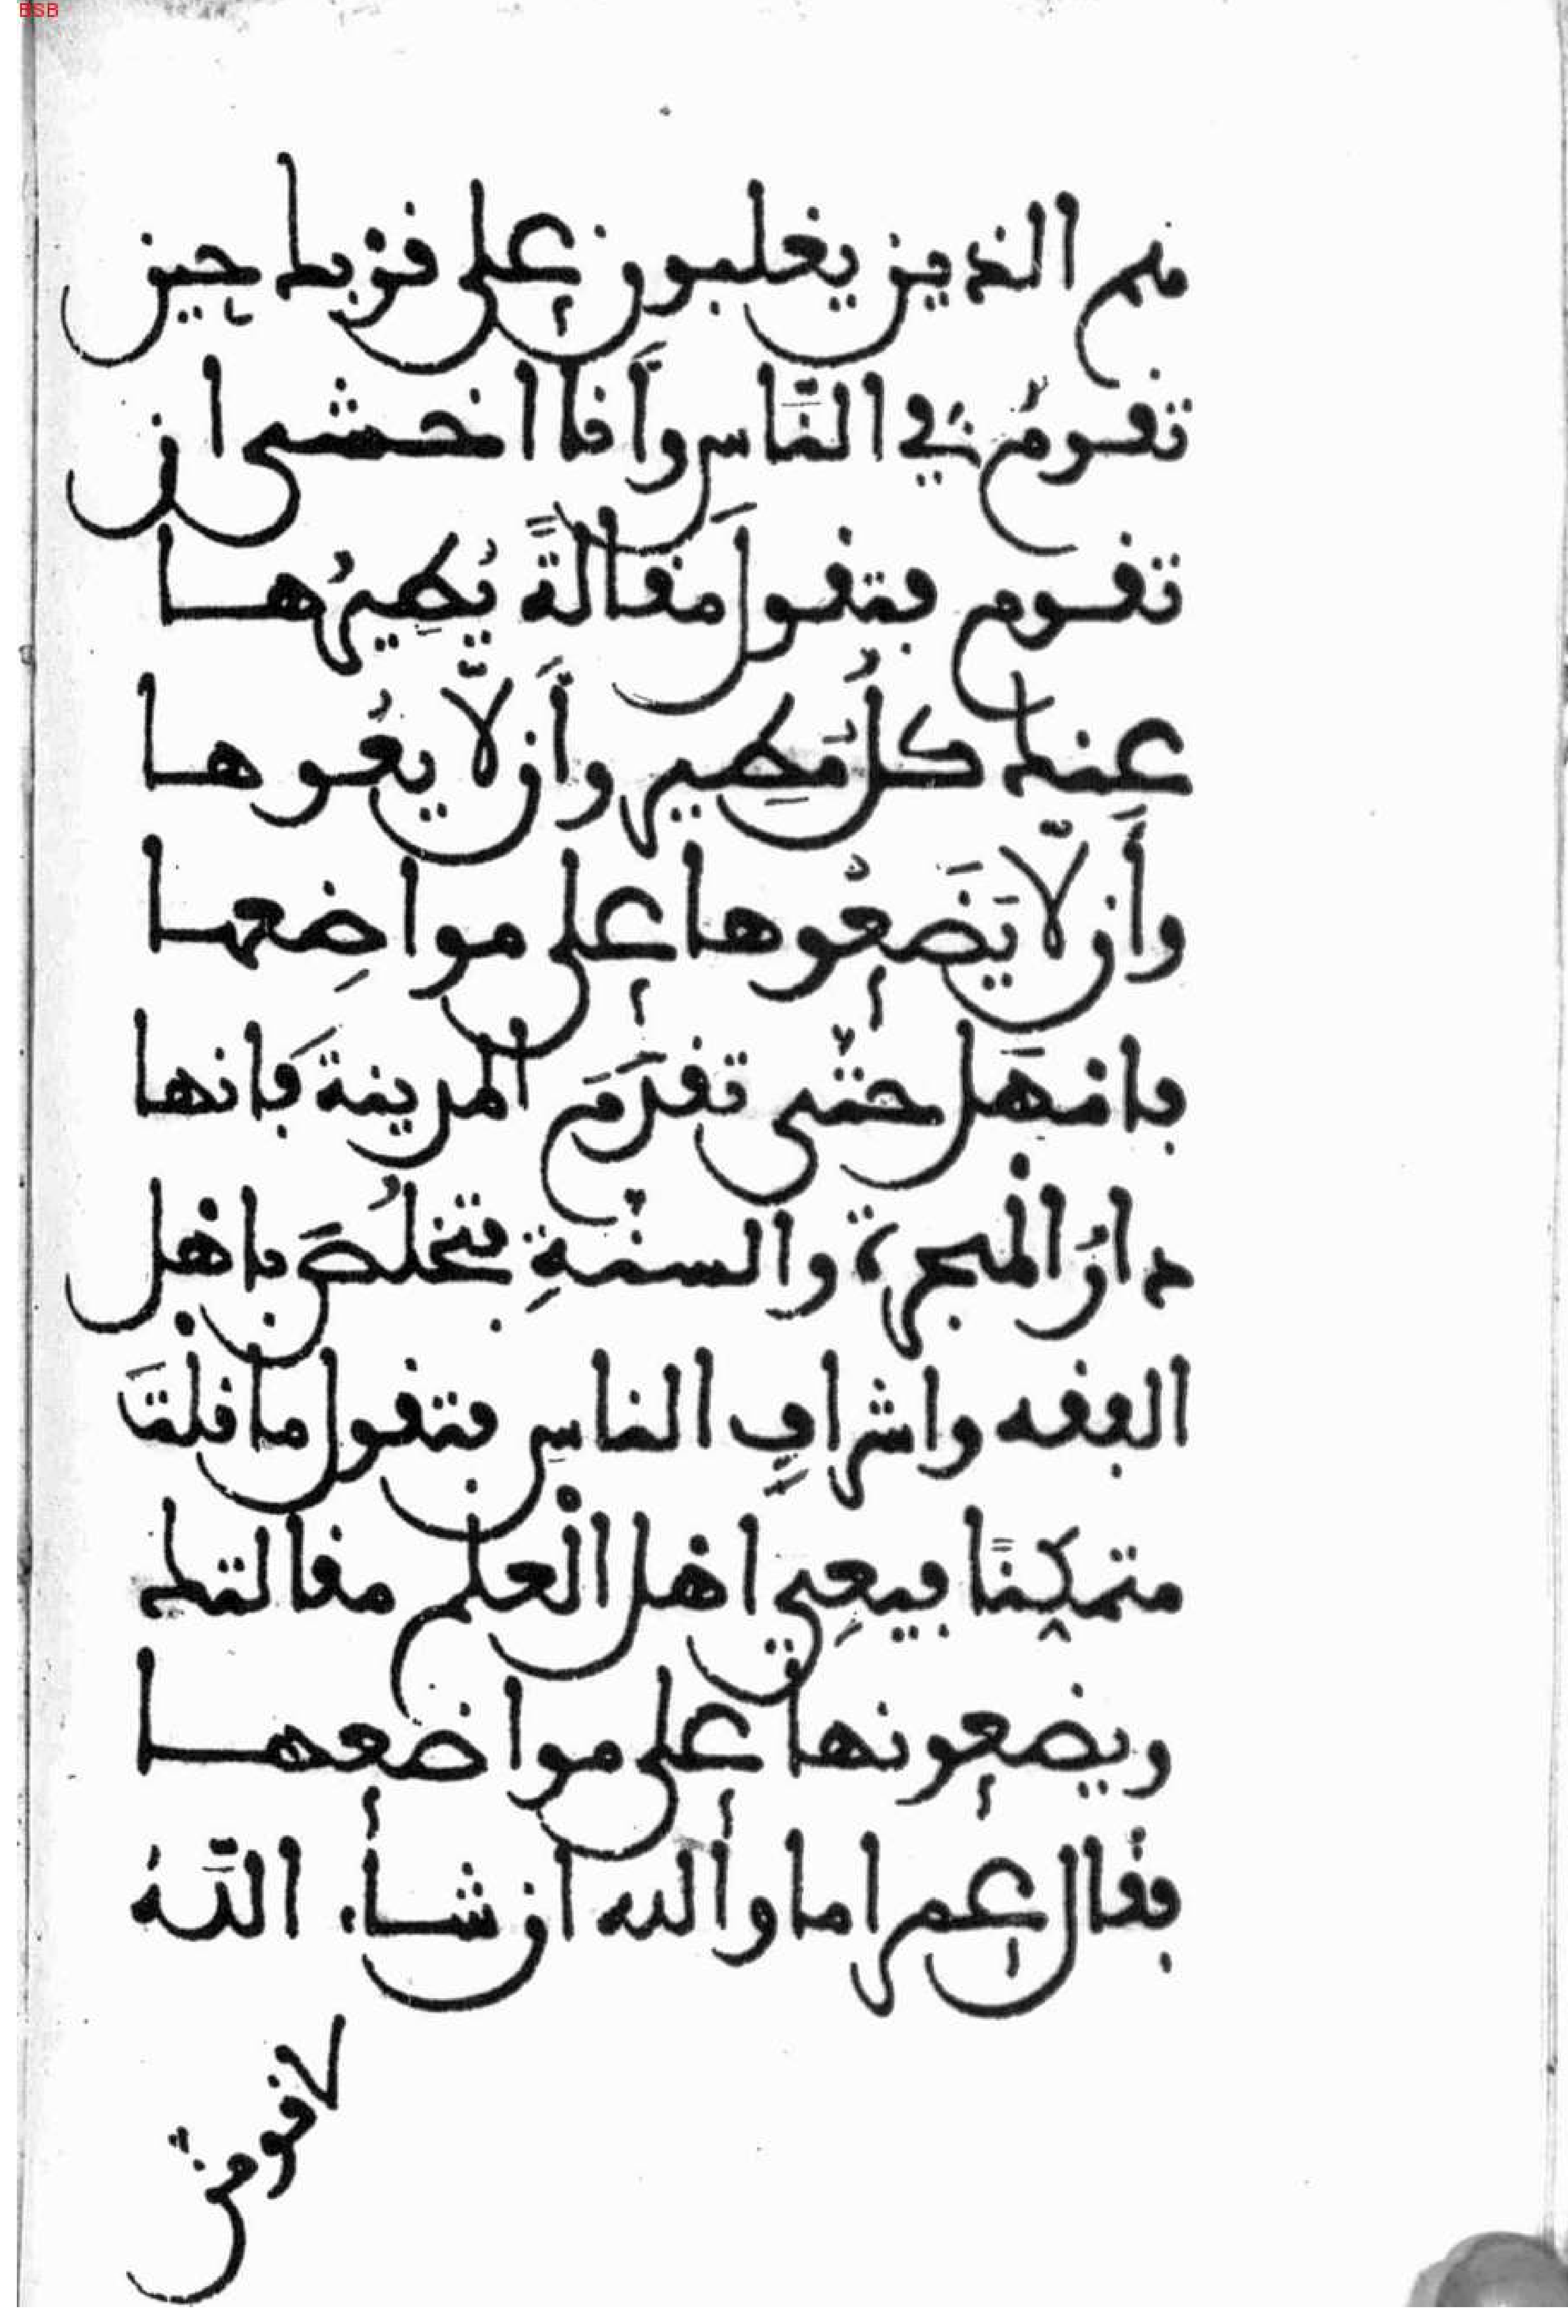 BSB
هم الذين يغلبون على قربك حين
تقومُ في النَّاس وأَنا اخشى ان
تقوم فتقول مَقالةً يُطيرُها
عنك كلُ مُطير وأَن لّا يعُوها
وأَن لّا يَضَعُوها على مواضِعها
فامهَل حتّى تقدَمَ المدينة فَانها
دارُ الْهجرة والسنّةِ فتخلُصَ باهْل
الفقه واشرافِ الناسِ فتقول ما قلتَ
متمكِنًا فيعِي اهْل الْعلم مقالتك
ويضعونها على مواضعها
فقال عمر اما والله ان شاء اللَّهُ
لاقومنّ